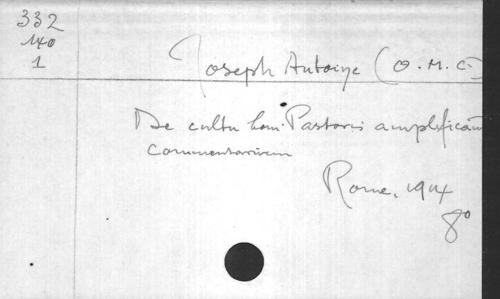 332
140
1
Joseph Antoine (O. M. C.)
De cultu boni Pastoris amplificand
commentarium
Rome, 1914
8°